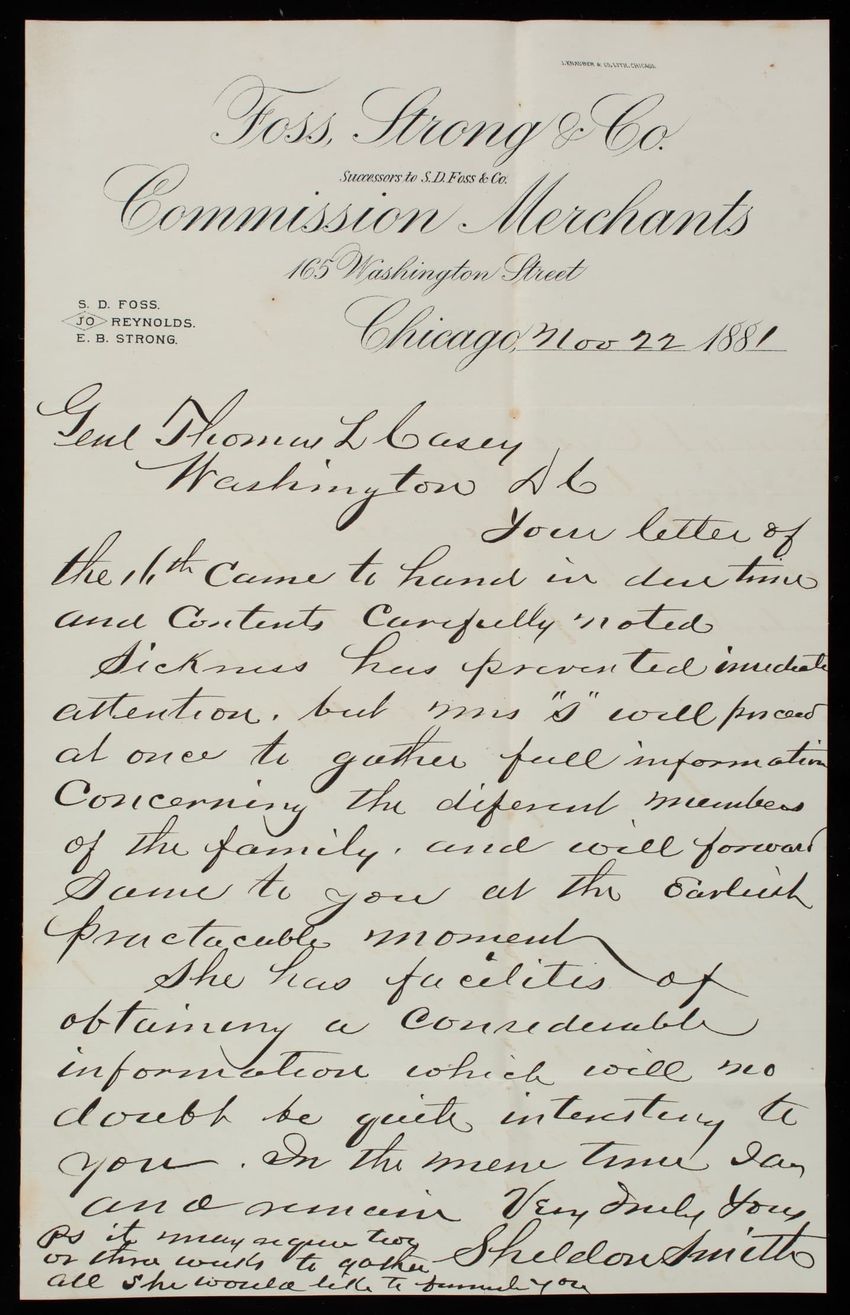 J. KNAUBER & CO. LITH. CHICAGO.
Foss, Strong & Co.
Successors to S. D. Foss & Co.
Commission Merchants
165 Washington Street
S. D. FOSS.
JO REYNOLDS.
E. B. STRONG.
Chicago, Nov 22 1881
Genl Thomas L Casey
Washington D C
Your letter of
the 16th Came to hand in due time
and Contents Carefully noted
Sickness has prevented imediate
attention. but Mrs "S" will proceed
at once to gather full information
Concerning the diferent members
of the family. and will forward
Same to you at the Earliest
practacable moment
She has facilities of
obtaining a Considerable
information which will no
doubt be quite interesting to
you. In the mene time I am
and remain Very Truly Yours
Sheldon Smith
PS it may require two
or three weeks to gather
all She would like to furnish you